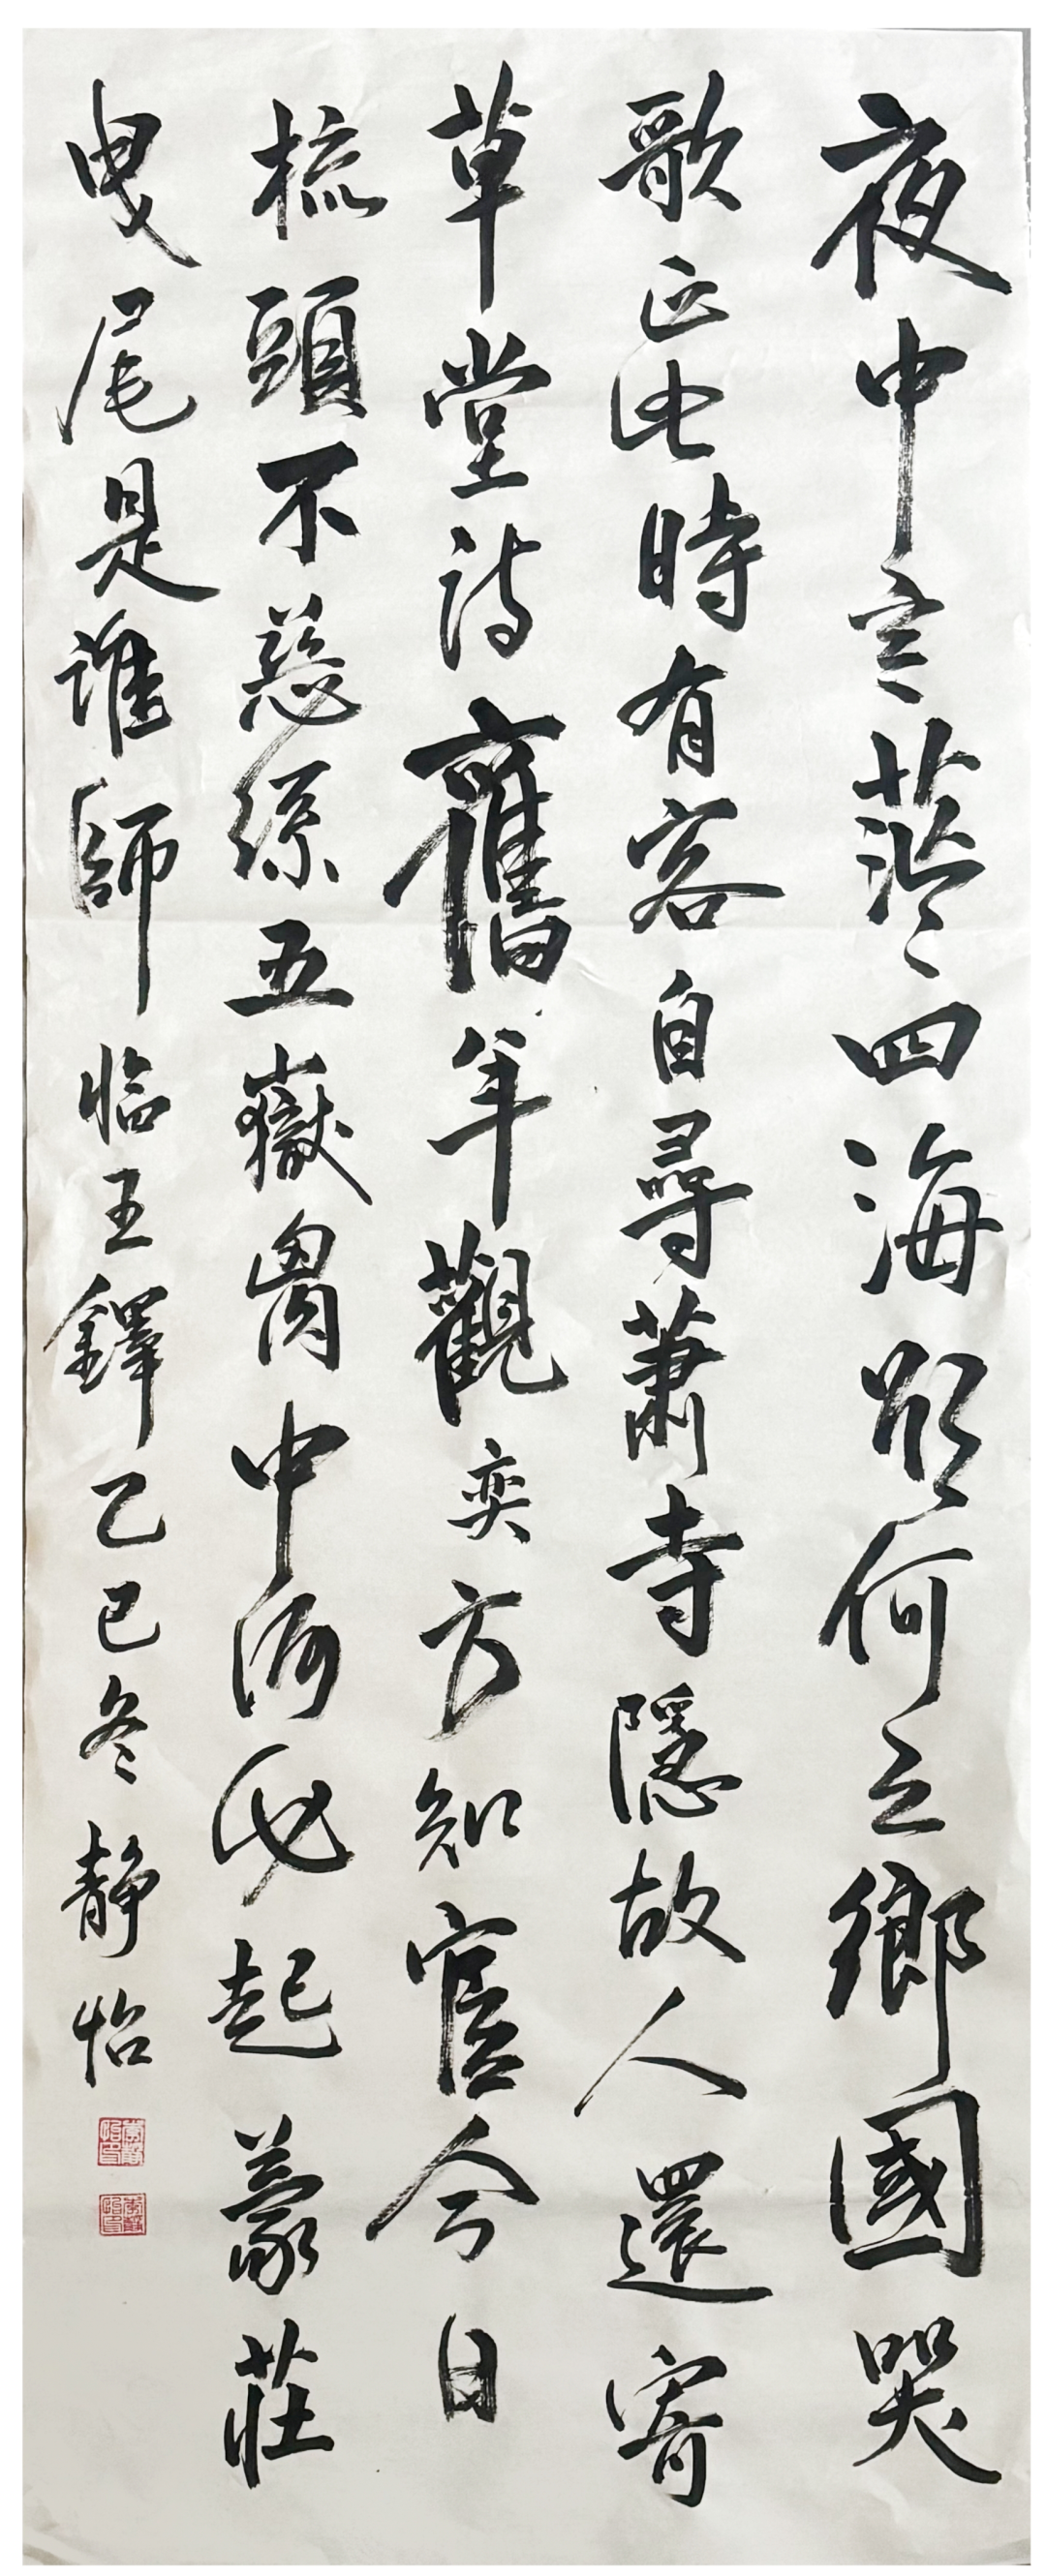 夜中言茫々四海欲何之鄉國哭
歌正此時有客自尋蕭寺隱故人還寄
草堂詩舊年觀奕方知官今日
梳頭不絲五嶽胷中何必起蒙莊
曳尾是誰師临王鐸乙巳冬静怡